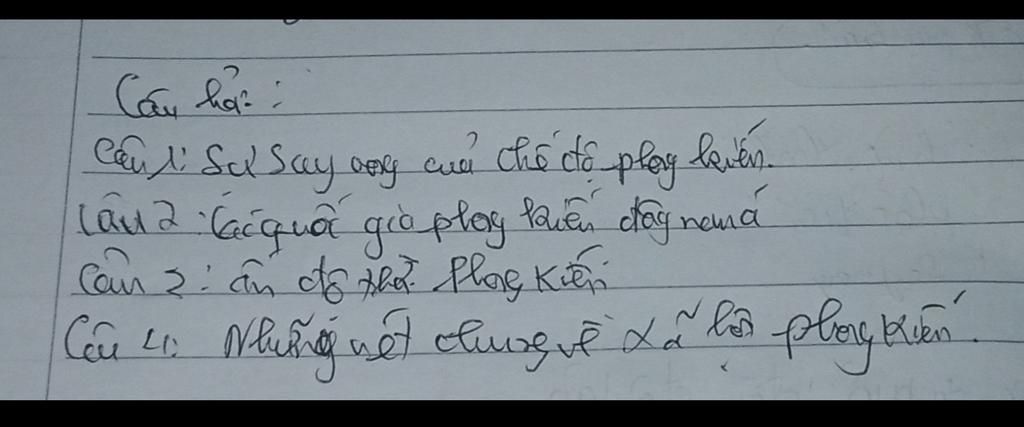 Câu hỏi:
Câu 1: Sự Suy vong của chế độ phong kiến.
Câu 2: Các quốc gia phong kiến đông nam á
Câu 3: ấn độ thời Phong Kiến
Câu 4: Những nét chung về xã hội phong kiến.